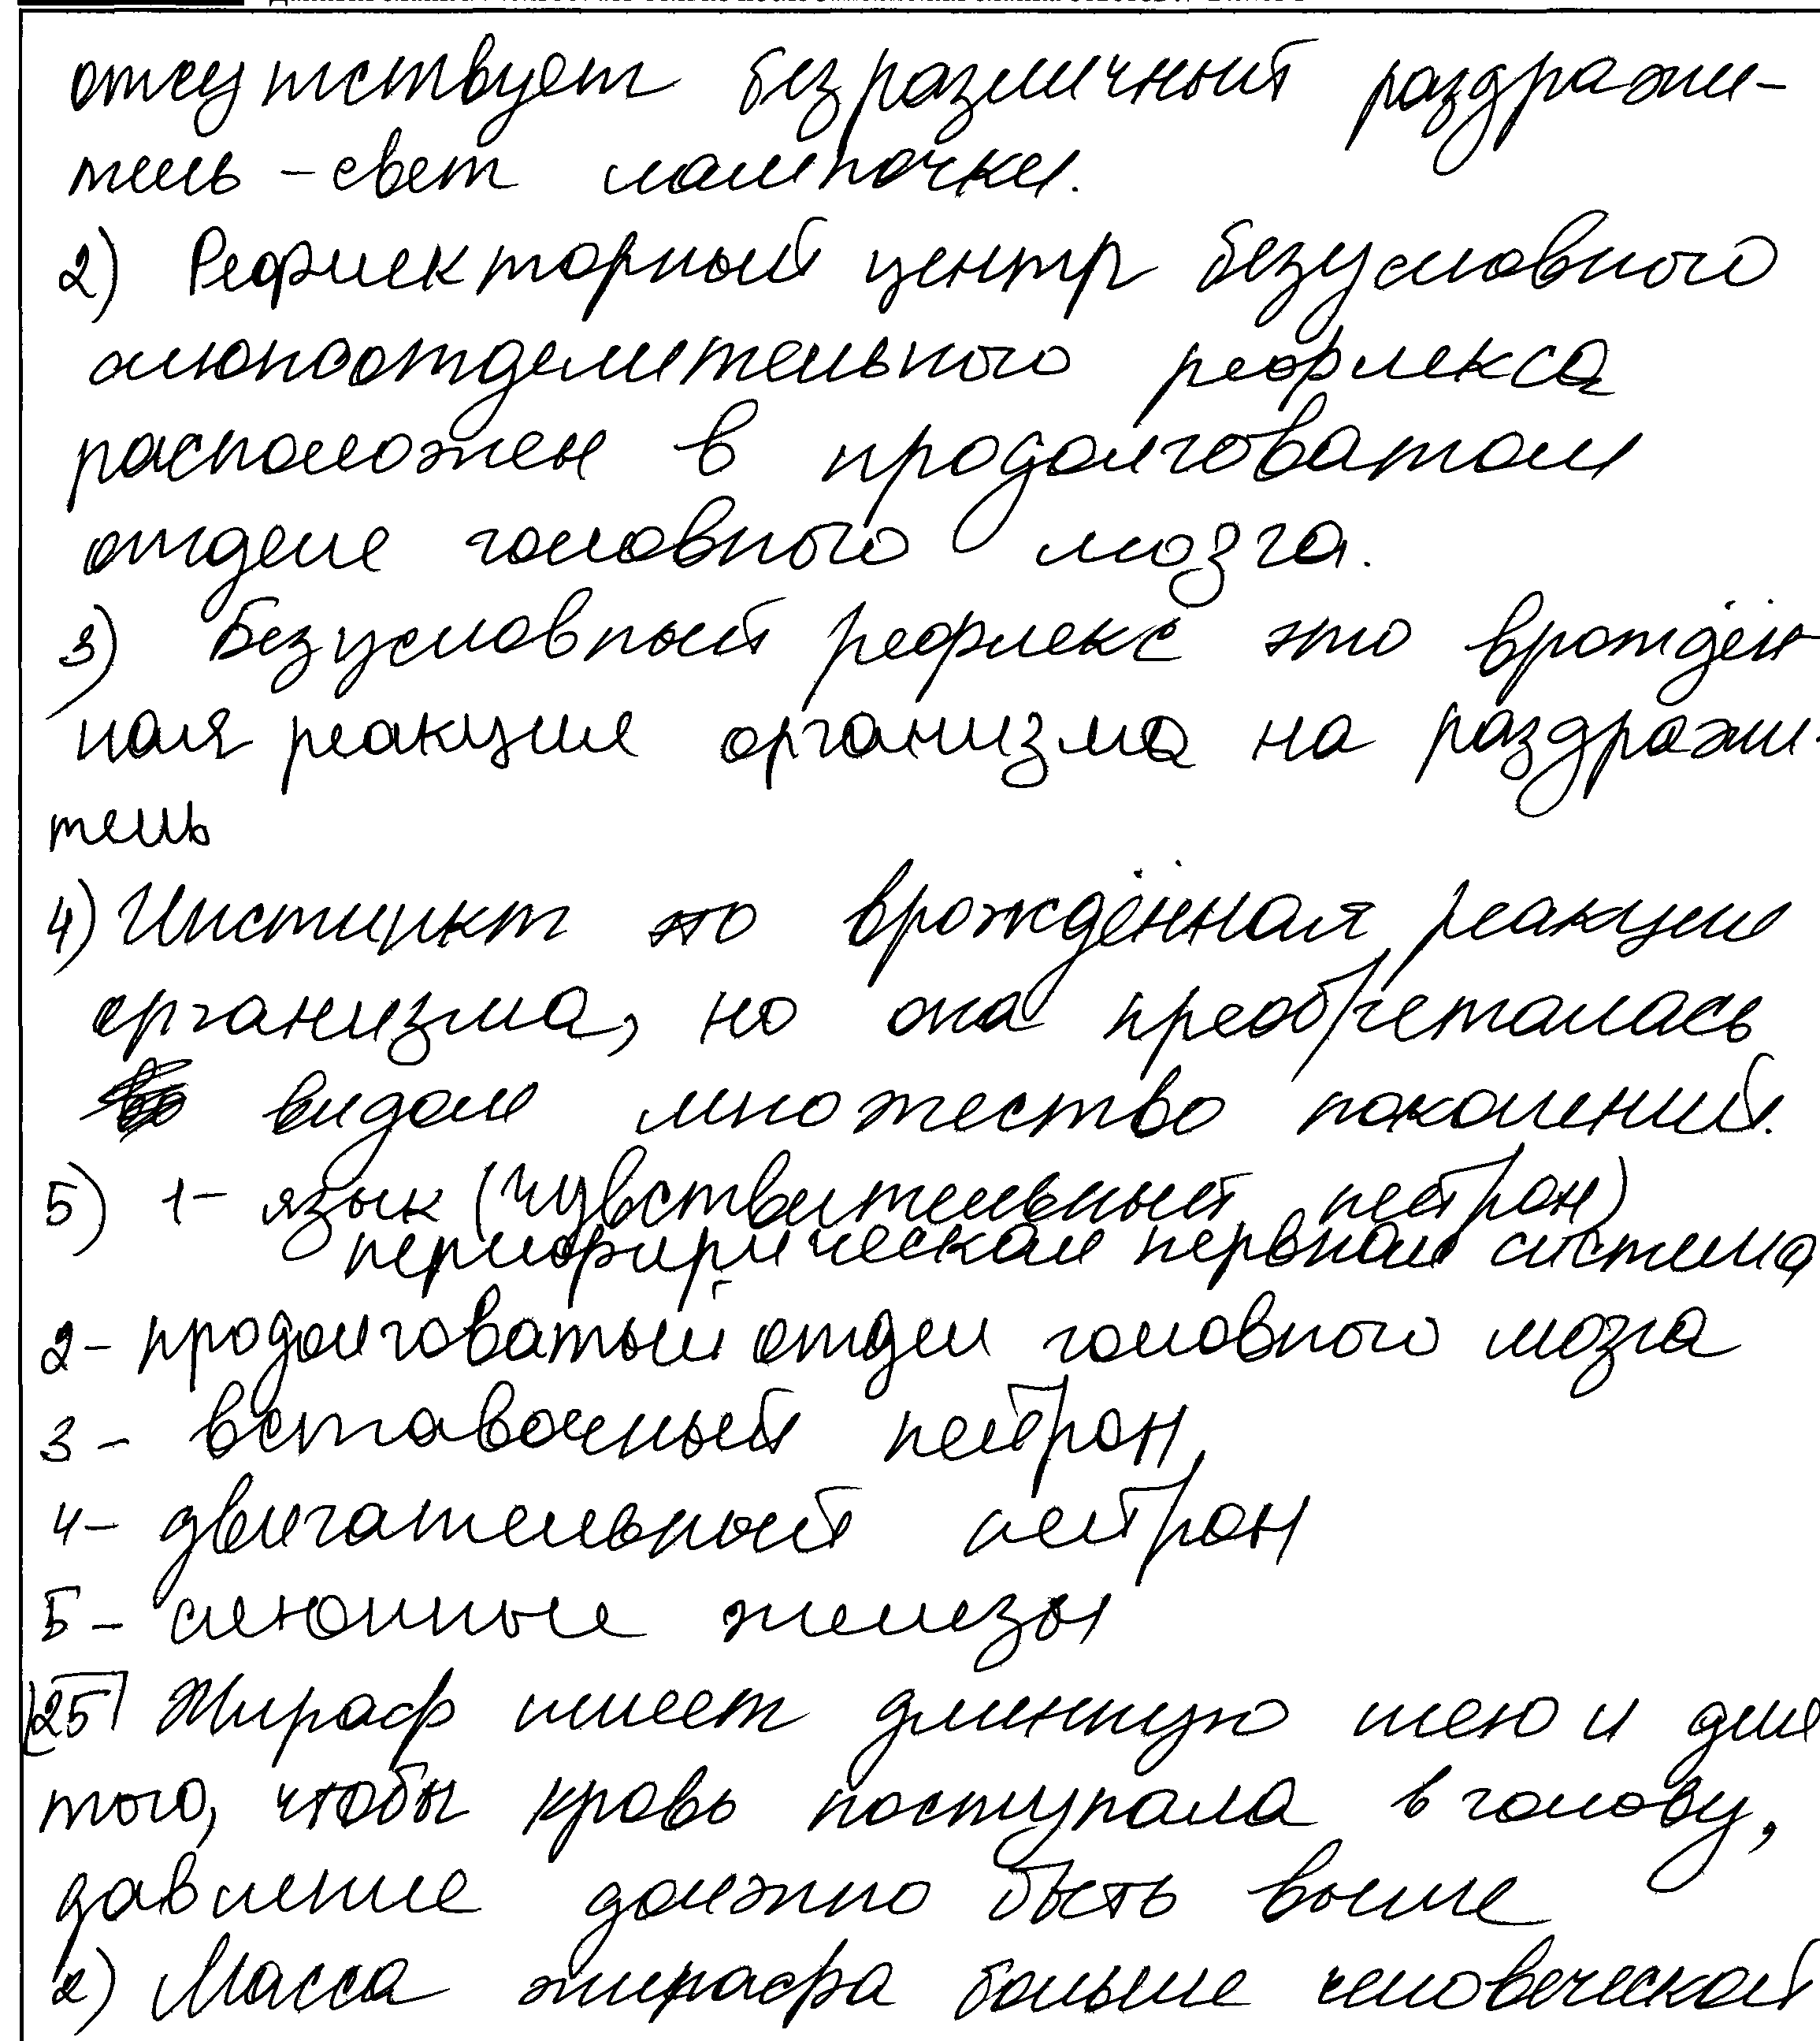 отсутствует безразличный раздражи-
тель - свет лампочки.
2) Рефлекторный центр безусловного
слюноотделительного рефлекса
расположен в продолговатом
отделе головного мозга.
3) Безусловный рефлекс это врождён-
ная реакция организма на раздражи-
тель
4) Инстинкт это врождённая реакция
организма, но она преобреталась
видом множество поколений.
5) 1- язык (чувствительный нейрон)
периферическая нервная система
2- продолговатый отдел головного мозга
3- вставочный нейрон
4- двигательный нейрон
5- слюнные железы
25 Жираф имеет длинную шею и для
того, чтобы кровь поступала в голову,
давление должно быть выше
2) Масса жирафа больше человеческой